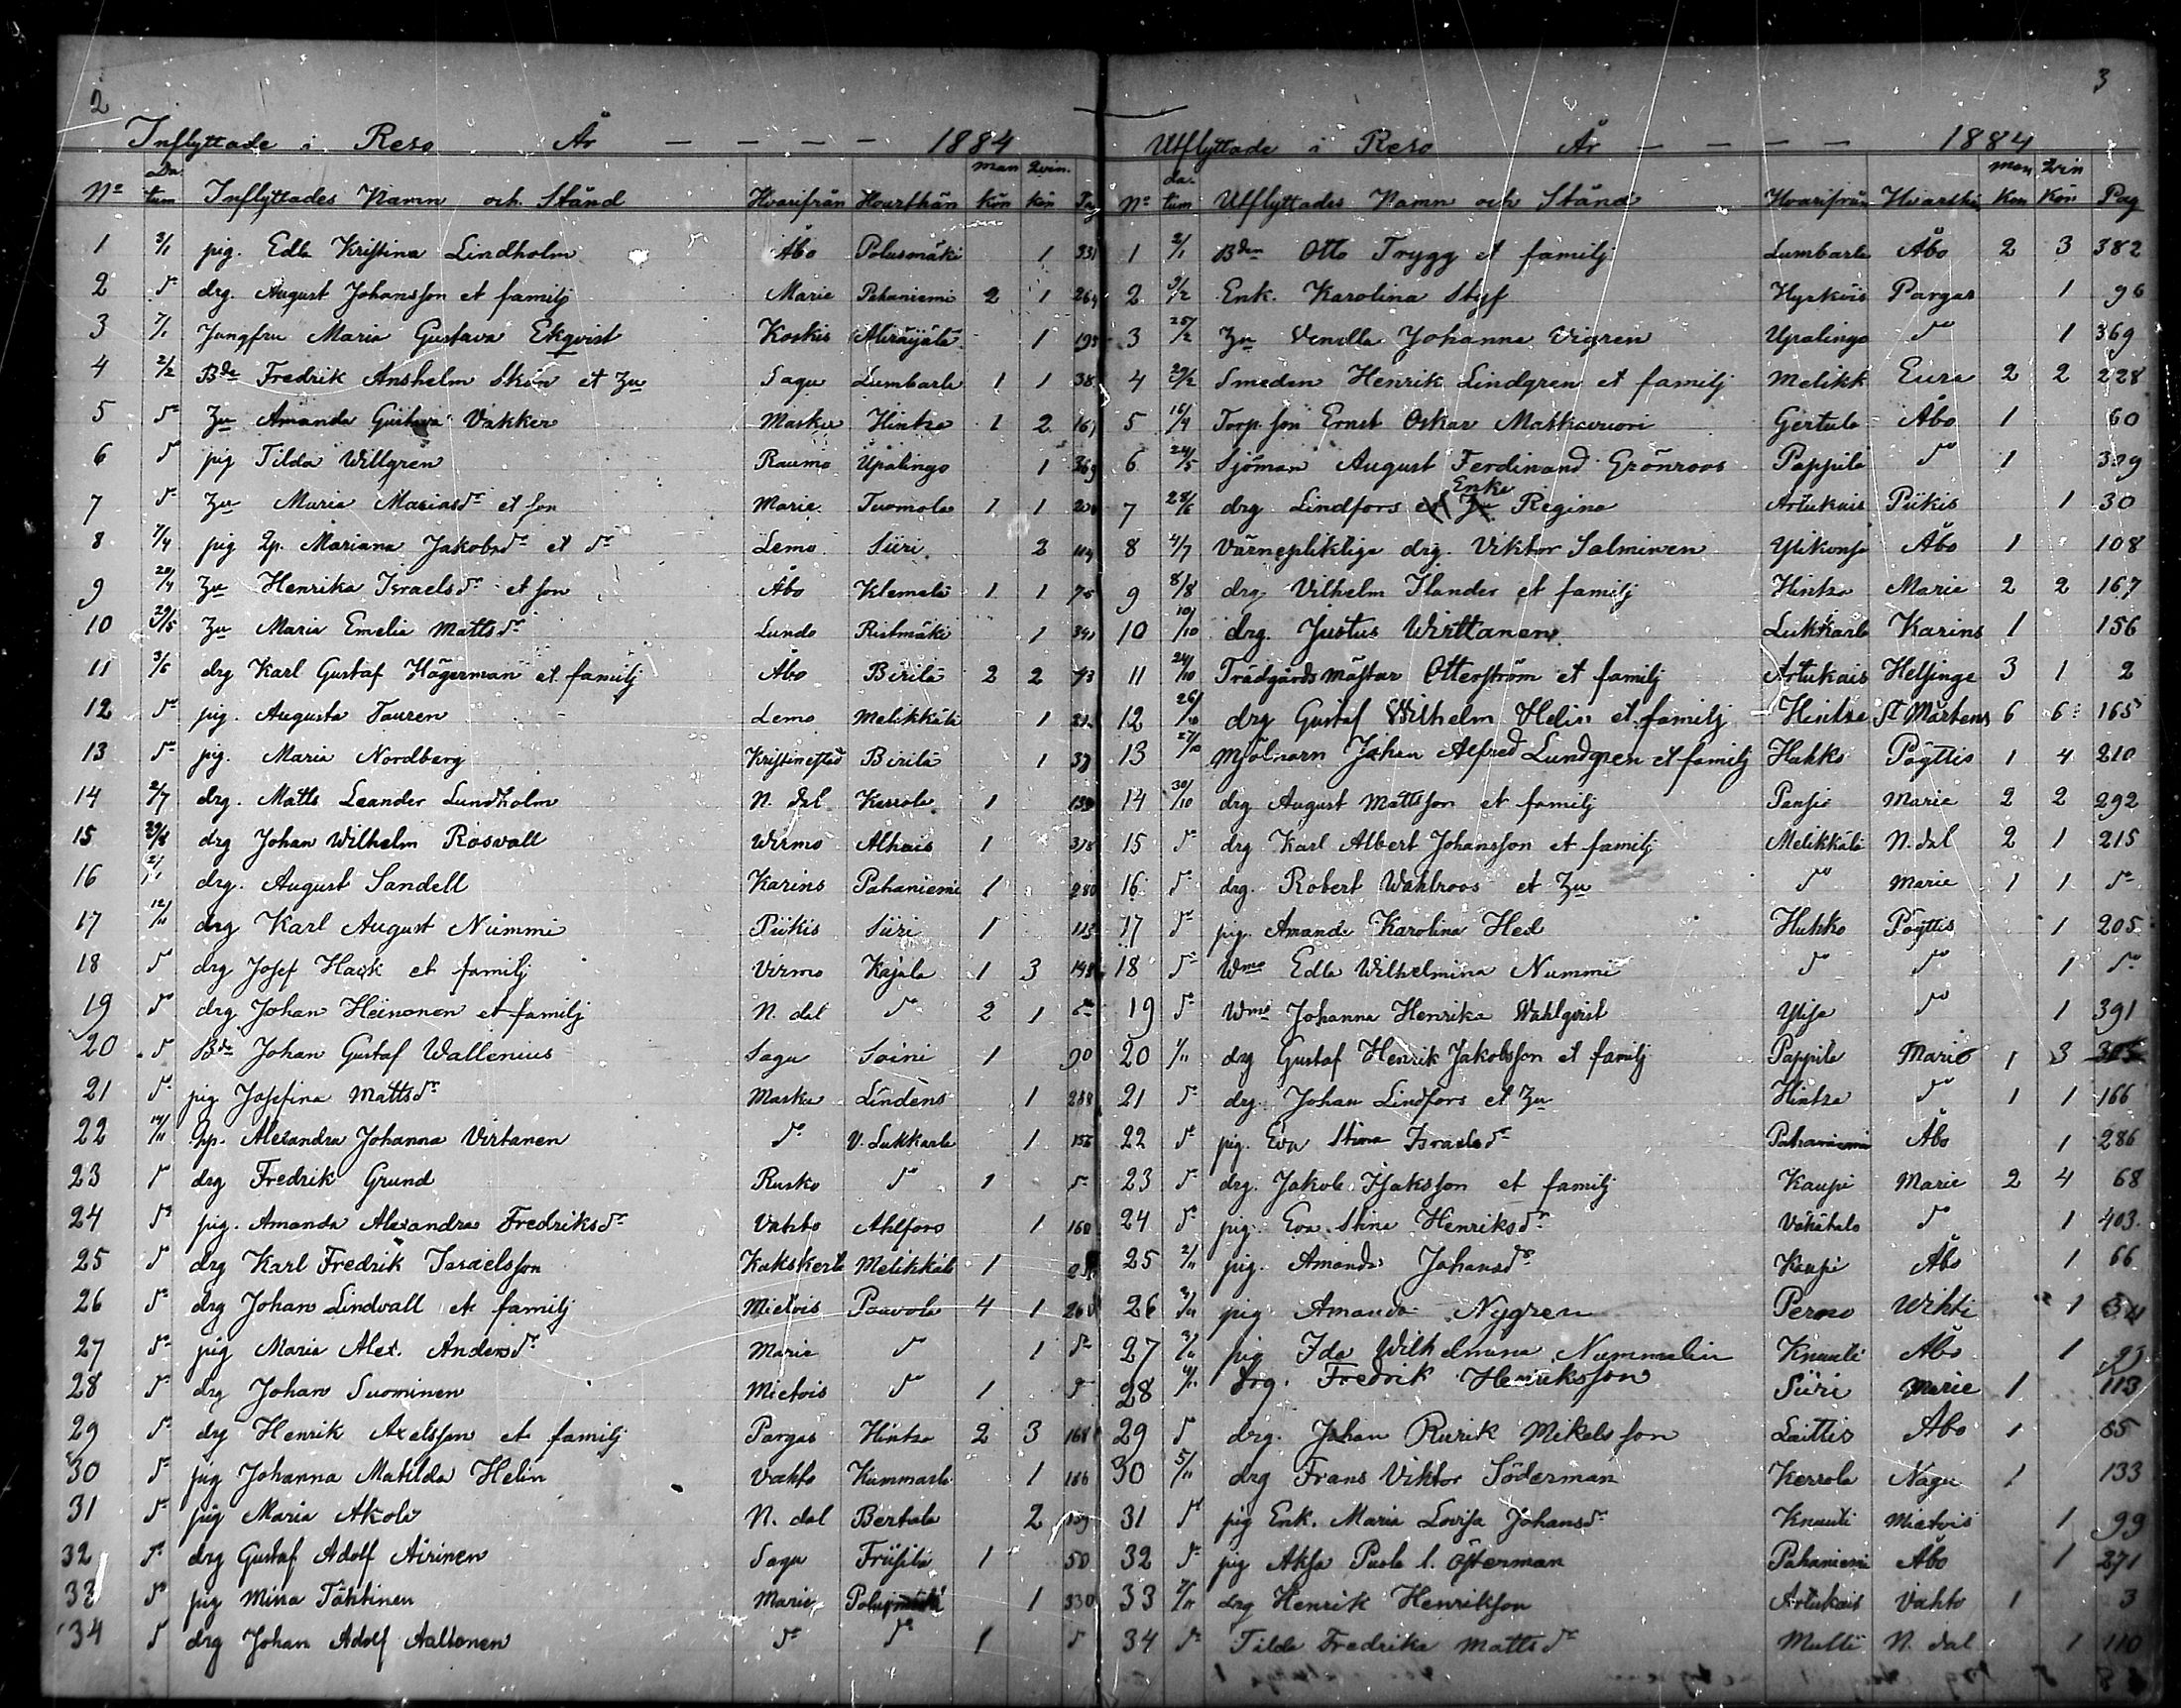 2
Inflyttade i Reso År — — — — 1884
No Datum Inflyttades Namn och Stånd Hvarifrån Hvarthän mankön Qvinkön Pag
1 3/1 pig. Edla Kristina Lindholm Åbo Polusmäki 1 331
2 do drg. August Johansson et familj Marie Pahaniemi 2 1 264
3 7/1 Jungfru Maria Gustava Ekqvist Koskis Aliräijälä 1
4 2/2 Bde Fredrik Anshelm Skön et hu Sagu Lumbarla 1 1 38
5 do hu Amanda Gustava Vakker Masku Hintsa 1 2 167
6 do pig Tilda Willgren Raumo Upalingo 1 369
7 do hu Maria Mariasdr et son Marie Tuomola 1 1
8 7/4 pig Qp. Mariana Jakobsdr et dr Lemo Siiri 2
9 20/4 hu Henrika Israelsdr et son Åbo Klemela 1 1 75
10 29/5 hu Maria Emelia Mattsdr Lundo Ristmäki 1
11 3/6 drg Karl Gustaf Hägerman et familj Åbo Birilä 2 2
12 do pig. Augusta Tauren Lemo Melikkälä 1
13 do pig. Maria Nordberg Kristinestad Birilä 1 37
14 2/7 drg. Matts Leander Lundholm N. dal Kerrola 1 139
15 29/8 drg Johan Wilhelm Rosvall Wirmo Alhais 1 378
16 drg. August Sandell Karins Pahaniemi 1 280
17 12/11 drg Karl August Nummi Piikis Siiri 1 113
18 do drg Josef Hack et familj Virmo Kajala 1 3 148
19 do drg Johan Heinonen et familj N. dal do 2 1 do
20 do Bde Johan Gustaf Wallenius Sagu Soini 1 90
21 do pig Josefina Mattsdr Masku Lindens 1 288
22 14/11 Qp. Alexandra Johanna Virtanen do V. Lukkarla 1 156
23 do drg Fredrik Grund Rusko do 1 do
24 do pig. Amanda Alexandra Fredriksdr Vahto Ahlfors 1 160
25 do drg Karl Fredrik Israelsson Kakskerta Melikkälä 1
26 do drg Johan Lindvall et familj Mietois Paavola 4 1 260
27 do pig Maria Alex. Andersdr Marie do 1 do
28 do drg Johan Suominen Mietois do 1 do
29 do drg Henrik Axelsson et familj Pargas Hintsa 2 3 168
30 do pig Johanna Matilda Helin Vahto Kummarla 1 186
31 do pig Maria Akola N. dal Bertala 2 159
32 do drg Gustaf Adolf Airinen Sagu Friisilä 1 50
33 do pig Mina Tähtinen Marie Polusmäki 1 330
34 do drg Johan Adolf Aaltonen do do 1 do
3
Utflyttade i Reso År — — — — 1884
No datum Utflyttades Namn och Stånd Hvarifrån Hvarthän man kön Qvin kön Pag
1 2/1 Bden Otto Trygg et familj Lumbarla Åbo 2 3 382
2 3/2 Enk. Karolina Styf Hyrköis Pargas 1 96
3 25/2 hu Vendla Johanna Vigren Upalingo do 1 369
4 29/2 Smeden Henrik Lindgren et familj Melikk Eura 2 2 228
5 16/4 Torp. son Ernst Oskar Matkavuori Gertula Åbo 1 60
6 24/5 Sjöman August Ferdinand Grönroos Pappila do 1 309
7 28/6 drg Lindfors et hu Enka Regina Artukais Piikis 1 30
8 4/7 Värnepliktige drg. Viktor Salminen Ylikonsa Åbo 1 108
9 8/8 drg Vilhelm Ilander et familj Hintsa Marie 2 2 167
10 10/10 drg. Justus Wirttanen Lukkarla Karins 1 156
11 24/10 Trädgårdsmästar Otterström et familj Artukais Helsinge 3 1 2
12 26/10 drg Gustaf Wilhelm Helin et familj Hintsa St Mårtens 6 6 165
13 27/10 Mjölnarn Johan Alfred Lundgren et familj Huhko Pöyttis 1 4 210
14 30/10 drg August Mattsson et familj Pansio Marie 2 2 292
15 do drg Karl Albert Johansson et familj Melikkälä N. dal 2 1 215
16 do drg. Robert Wahlroos et hu do Marie 1 1 do
17 do pig. Amanda Karolina Hed Huhko Pöyttis 1 205
18 do Wmo Edla Wilhelmina Nummi do do 1 do
19 do Wmo Johanna Henrika Wahlqvist Ylija do 1 391
20 1/11 drg Gustaf Henrik Jakobsson et familj Pappila Marie 1 3 305
21 do drg. Johan Lindfors et hu Hintsa do 1 1 166
22 do pig. Eva Stina Israelsdr Pahaniemi Åbo 1 286
23 do drg. Jakob Isaksson et familj Kaupi Marie 2 4 68
24 do pig. Eva Stina Henriksdr Vähätalo do 1 403
25 2/11 pig. Amanda Johansdr Kaupi Åbo 1 66
26 3/11 pig Amanda Nygren Perno Wihti 1
27 3/11 pig Ida Wilhelmina Nummelin Knuuti Åbo 1 93
28 4/11 drg. Fredrik Henriksson Siiri Marie 1 113
29 do drg. Johan Rurik Mikelsson Laittis Åbo 1 85
30 5/11 drg Frans Viktor Söderman Kerrola Nagu 1 133
31 do pig Enk. Maria Lovisa Johansdr Knuuti Mietois 1 99
32 do pig Aksa Paola l. Österman Pahaniemi Åbo 1 271
33 7/11 drg Henrik Henriksson Artukais Vahto 1 3
34 do Tilda Fredrika Mattsdr Mulli N. dal 1 110